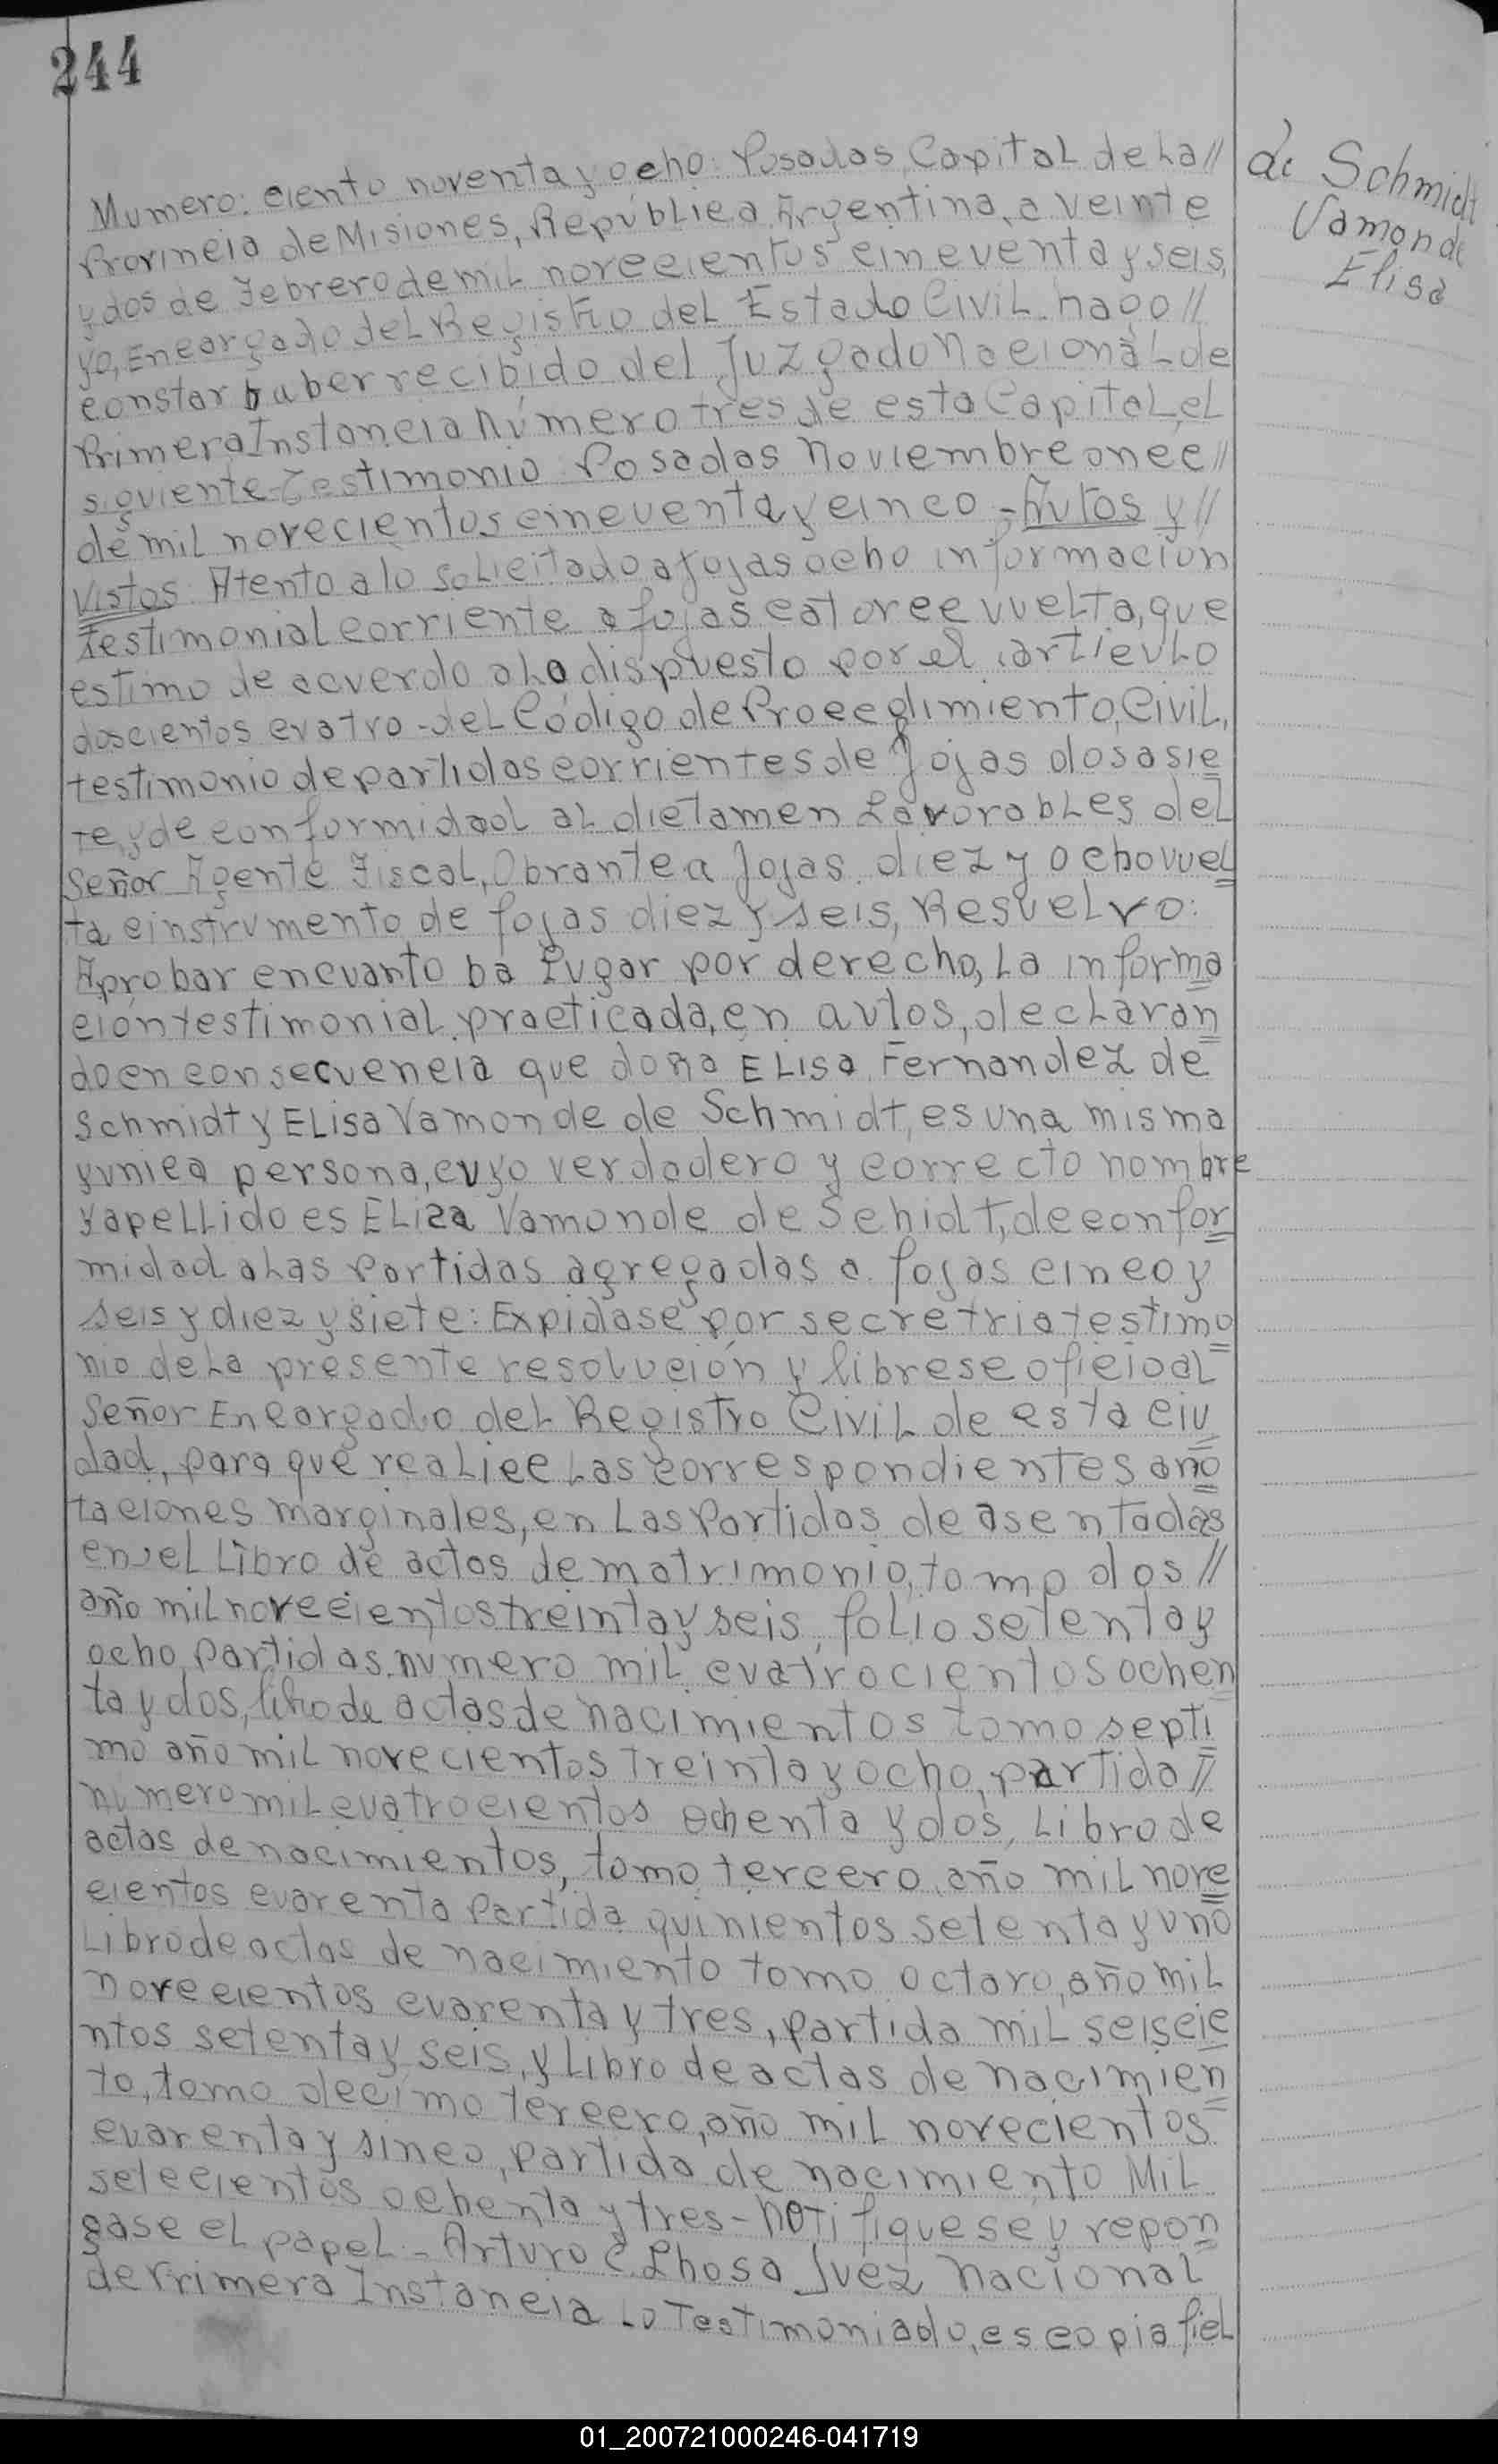 244
Numero: ciento noventa y ocho: Posadas, Capital de La //
Provincia de Misiones, República Argentina, a veinte
y dos de Febrero de mil novecientos cincuenta y seis,
yo, Encargado del Registro del Estado Civil. hago //
constar haber recibido del Juzgado Nacional de
Primera Instancia Número tres de esta Capital, el
siguiente Testimonio Posadas Noviembre once //
de mil novecientos cincuenta y cinco - Autos y //
Vistos: Atento a lo solicitado a fojas ocho información
testimonial corriente a fojas catorce vuelta, que
estimo de acuerdo a lo dispuesto por el articulo
doscientos cuatro - del Código de Procedimiento, Civil,
testimonio de partidas corrientes de fojas dos a sie
te, y de conformidad al dictamen favorables del
Señor Agente Fiscal, Obrante a fojas diez y ocho vuel
ta e instrumento de fojas diez y seis, Resuelvo:
Aprobar en cuanto ha lugar por derecho, La informa
ción testimonial practicada, en autos, declaran
do en consecuencia que doña ELisa Fernandez de
Schmidt y ELisa Vamonde de Schmidt, es una misma
y unica persona, cuyo verdadero y correcto nombre
y apellido es ELiza Vamonde de Schidt, de confor
midad a las Partidas agregadas a fojas cinco y
seis y diez y siete: Expidase por secretria testimo
nio de La presente resolución y librese oficio al
Señor Encargado del Registro Civil de esta ciu
dad, para que realice las correspondientes ano
taciones marginales, en Las Partidas de asentadas
en el Libro de actas de matrimonio, tomo dos //
año mil novecientos treinta y seis, folio setenta y
ocho, Partidas numero mil cuatrocientos ochen
ta y dos, libro de actas de nacimientos tomo septi
mo año mil novecientos treinta y ocho, partida //
numero mil cuatrocientos ochenta y dos, Libro de
actas de nacimientos, tomo tercero, año mil nove
cientos cuarenta Partida quinientos setenta y uno
Libro de actas de nacimiento tomo octavo, año mil
novecientos cuarenta y tres, partida mil seiscie
ntos setenta y seis, y Libro de actas de nacimien
to, tomo decimo tercero, año mil novecientos
cuarenta y sinco, Partida de nacimiento Mil
setecientos ochenta y tres - Notifiquese y repon
gase el papel - Arturo C. Juez Nacional
de Primera Instancia Lo Testimoniado, es copia fiel
de Schmidt
Vamonde
Elisa
01_200721000246-041719